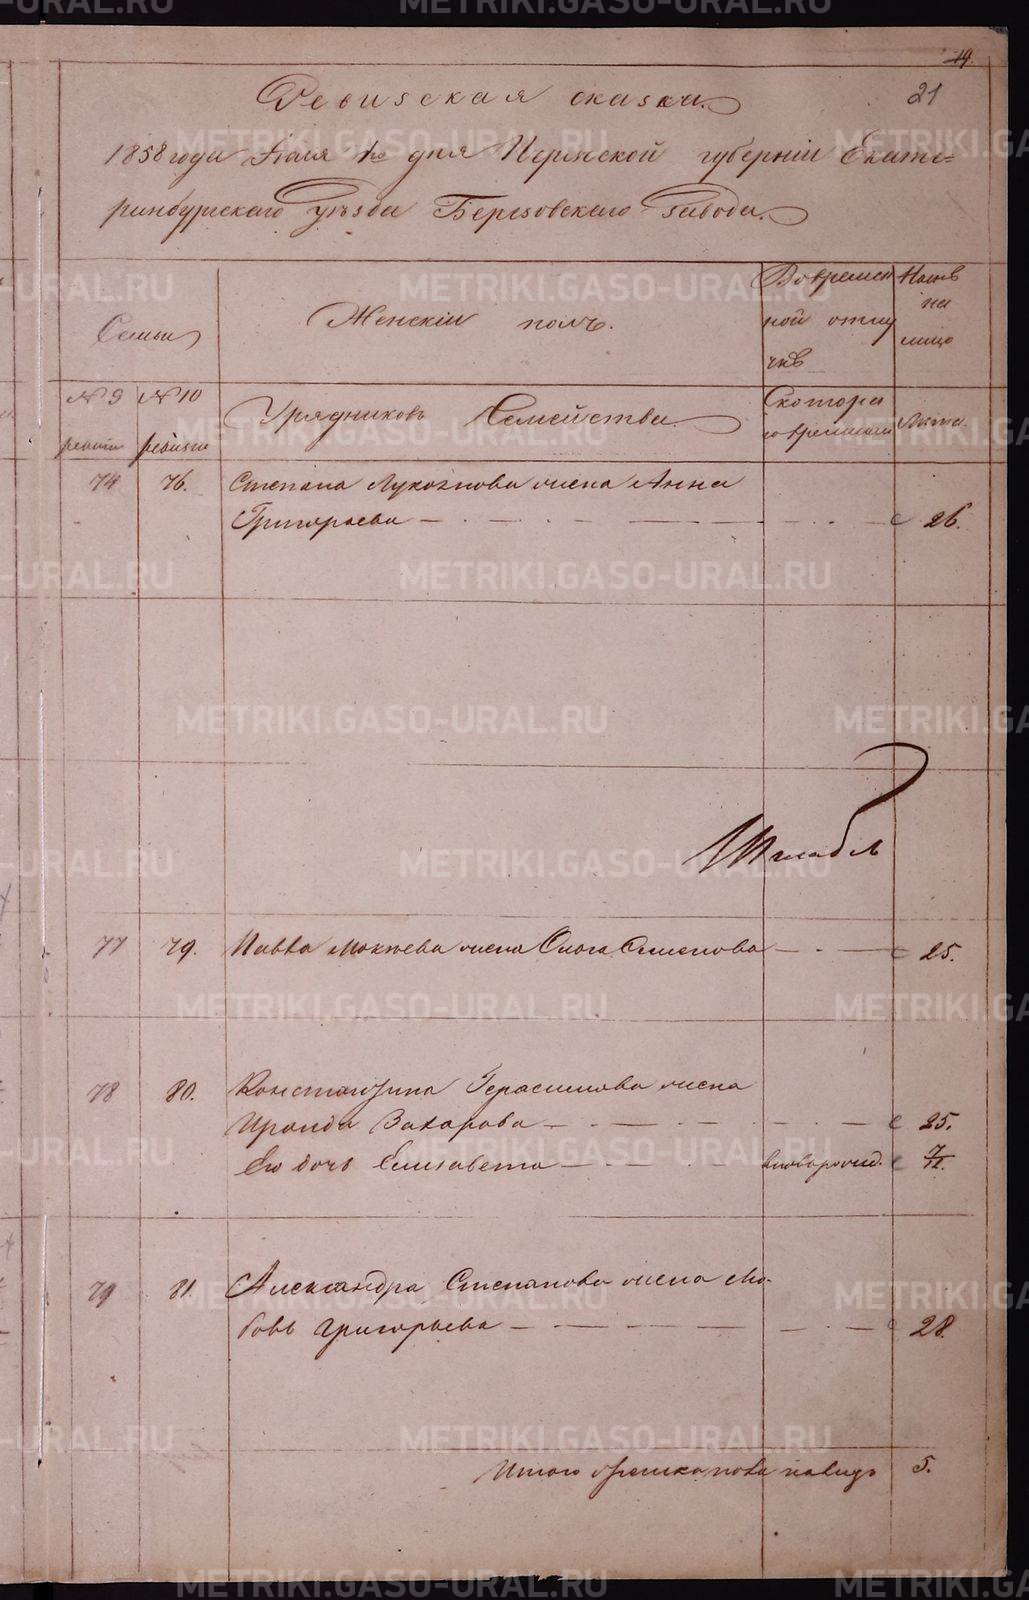 19
21
Ревизская сказка.
1858 года Июля 1го дня Пермской губерніи Екате=
ринбургскаго уѣзда Березовскаго завода.
Семьи
Женскій полъ.
Во времен
ной отлу
чкѣ
Налич
на
лицо
№ 9
ревизіи
№ 10
ревизіи
Урядниковъ Семейства.
Скотора
го времени
Лѣта.
74 76. Степана Лукоянова жена Анна
Григорьева 26.
77 79. Павла Мокѣева жена Ольга Семенова 25.
78 80. Константина Герасимова жена
Ираида Захарова 25.
Его дочь Елизавета вноворожд. 7/12.
79 81. Александра Степанова жена Лю-
бовь Григорьева 28.
Итого женска пола на лицо 5.
METRIKI.GASO-URAL.RU